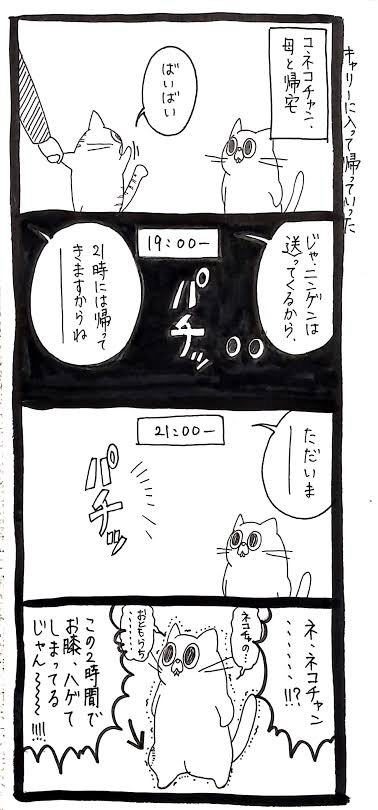 キャリーに入って帰っていった
コネコチャン、
母と帰宅
ばいばい
じゃ、ニンゲンは
送ってくるから、
19:00ー
パチッ
21時には帰って
きますからねー
ただいまー
21:00ー
パチッ
ネ、ネコチャン
……!!?
ネコチャンの
おともらち
……
この2時間で
お膝、ハゲて
しまってる
じゃん〜〜〜!!!!